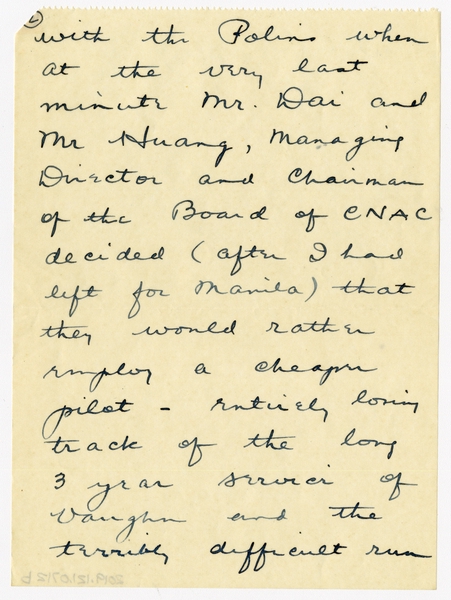 with the Polins when
at the very last
minute Mr. Dai and
Mr Huang, Managing
Director and Chairman
of the Board of CNAC
decided (after I had
left for Manila) that
they would rather
employ a cheaper
pilot - entirely losing
track of the long
3 year service of
Vaughn and the
terribly difficult run
2019.121.0712b